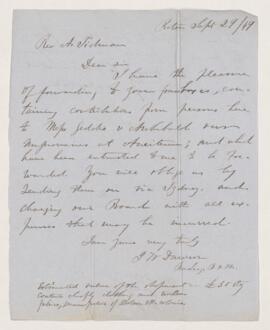 Pictou Sept 29/49
Rev A. Tidman
Dear Sir
I have the pleasure
of forwarding to your four boxes, con-
taining contributions from persons here
to Messrs Geddie & Archibald our
Missionaries at Aneiteum, and which
have been entrusted to me to be for-
warded. You will oblige us by
sending them on via Sydney, and
charging our Board with all ex-
penses that may be incurred.
I am yours very truly
J W Dawson
Estimated value of the shipment £50 Stg
Contents chiefly clothing and